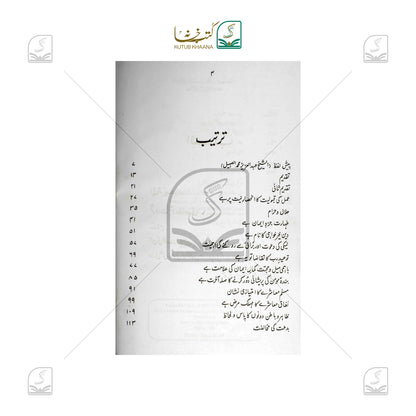 کتب خانہ
KUTUB KHAANA
۳
ترتیب
پیش لفظ (الشیخ عبدالعزیز محمد العمیل) ۷
تقدیم ۱۳
تقدیم ثانی ۲۱
عمل کی قبولیت کا انحصار نیت پر ہے ۲۷
حلال و حرام ۳۵
طہارت جزو ایمان ہے ۴۱
دین خیر خواہی کا نام ہے ۵۱
نیکی کی دعوت اور برائی سے روکنے کی اہمیت ۵۷
توحید رب کا تقاضا توبہ ہے ۶۹
باہمی میل و محبت کمال ایمان کی علامت ہے ۷۷
بندۂ مومن کی پریشانی دور کرنے کا صلہ آخرت ہے ۸۵
مسلم معاشرے کا امتیازی نشان ۹۱
نفاق معاشرے کا مہلک مرض ہے ۹۹
ظاہر و باطن دونوں کا پاس و لحاظ ۱۰۹
بدعت کی مخالفت ۱۱۳